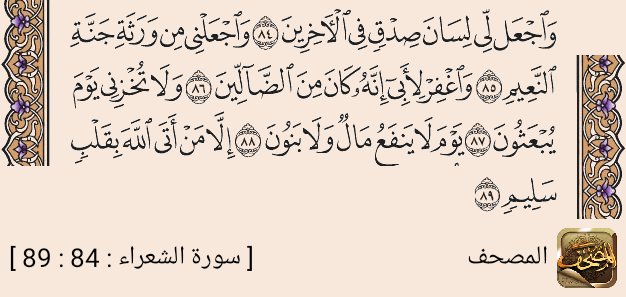 وَٱجْعَل لِّي لِسَانَ صِدْقٍ فِي ٱلْأٓخِرِينَ ٨٤ وَٱجْعَلْنِي مِن وَرَثَةِ جَنَّةِ
ٱلنَّعِيمِ ٨٥ وَٱغْفِرْ لِأَبِيٓ إِنَّهُۥ كَانَ مِنَ ٱلضَّآلِّينَ ٨٦ وَلَا تُخْزِنِي يَوْمَ
يُبْعَثُونَ ٨٧ يَوْمَ لَا يَنفَعُ مَالٌ وَلَا بَنُونَ ٨٨ إِلَّا مَنْ أَتَى ٱللَّهَ بِقَلْبٍ
سَلِيمٍ ٨٩
المصحف [ سورة الشعراء : 84 : 89 ]
المصحف